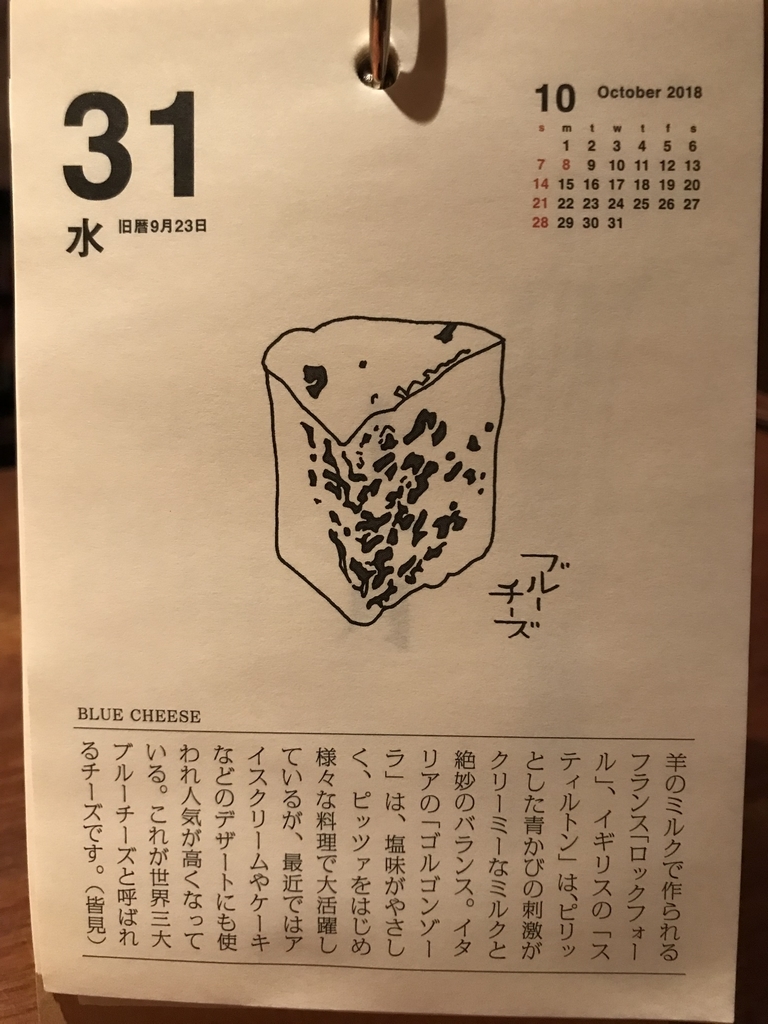 31
水 旧暦9月23日
10 October 2018
s m t w t f s
1 2 3 4 5 6
7 8 9 10 11 12 13
14 15 16 17 18 19 20
21 22 23 24 25 26 27
28 29 30 31
ブルー
チーズ
BLUE CHEESE
羊のミルクで作られる
フランス「ロックフォー
ル」、イギリスの「ス
ティルトン」は、ピリッ
とした青かびの刺激が
クリーミーなミルクと
絶妙のバランス。イタ
リアの「ゴルゴンゾー
ラ」は、塩味がやさし
く、ピッツァをはじめ
様々な料理で大活躍し
ているが、最近ではア
イスクリームやケーキ
などのデザートにも使
われ人気が高くなって
いる。これが世界三大
ブルーチーズと呼ばれ
るチーズです。（皆見）